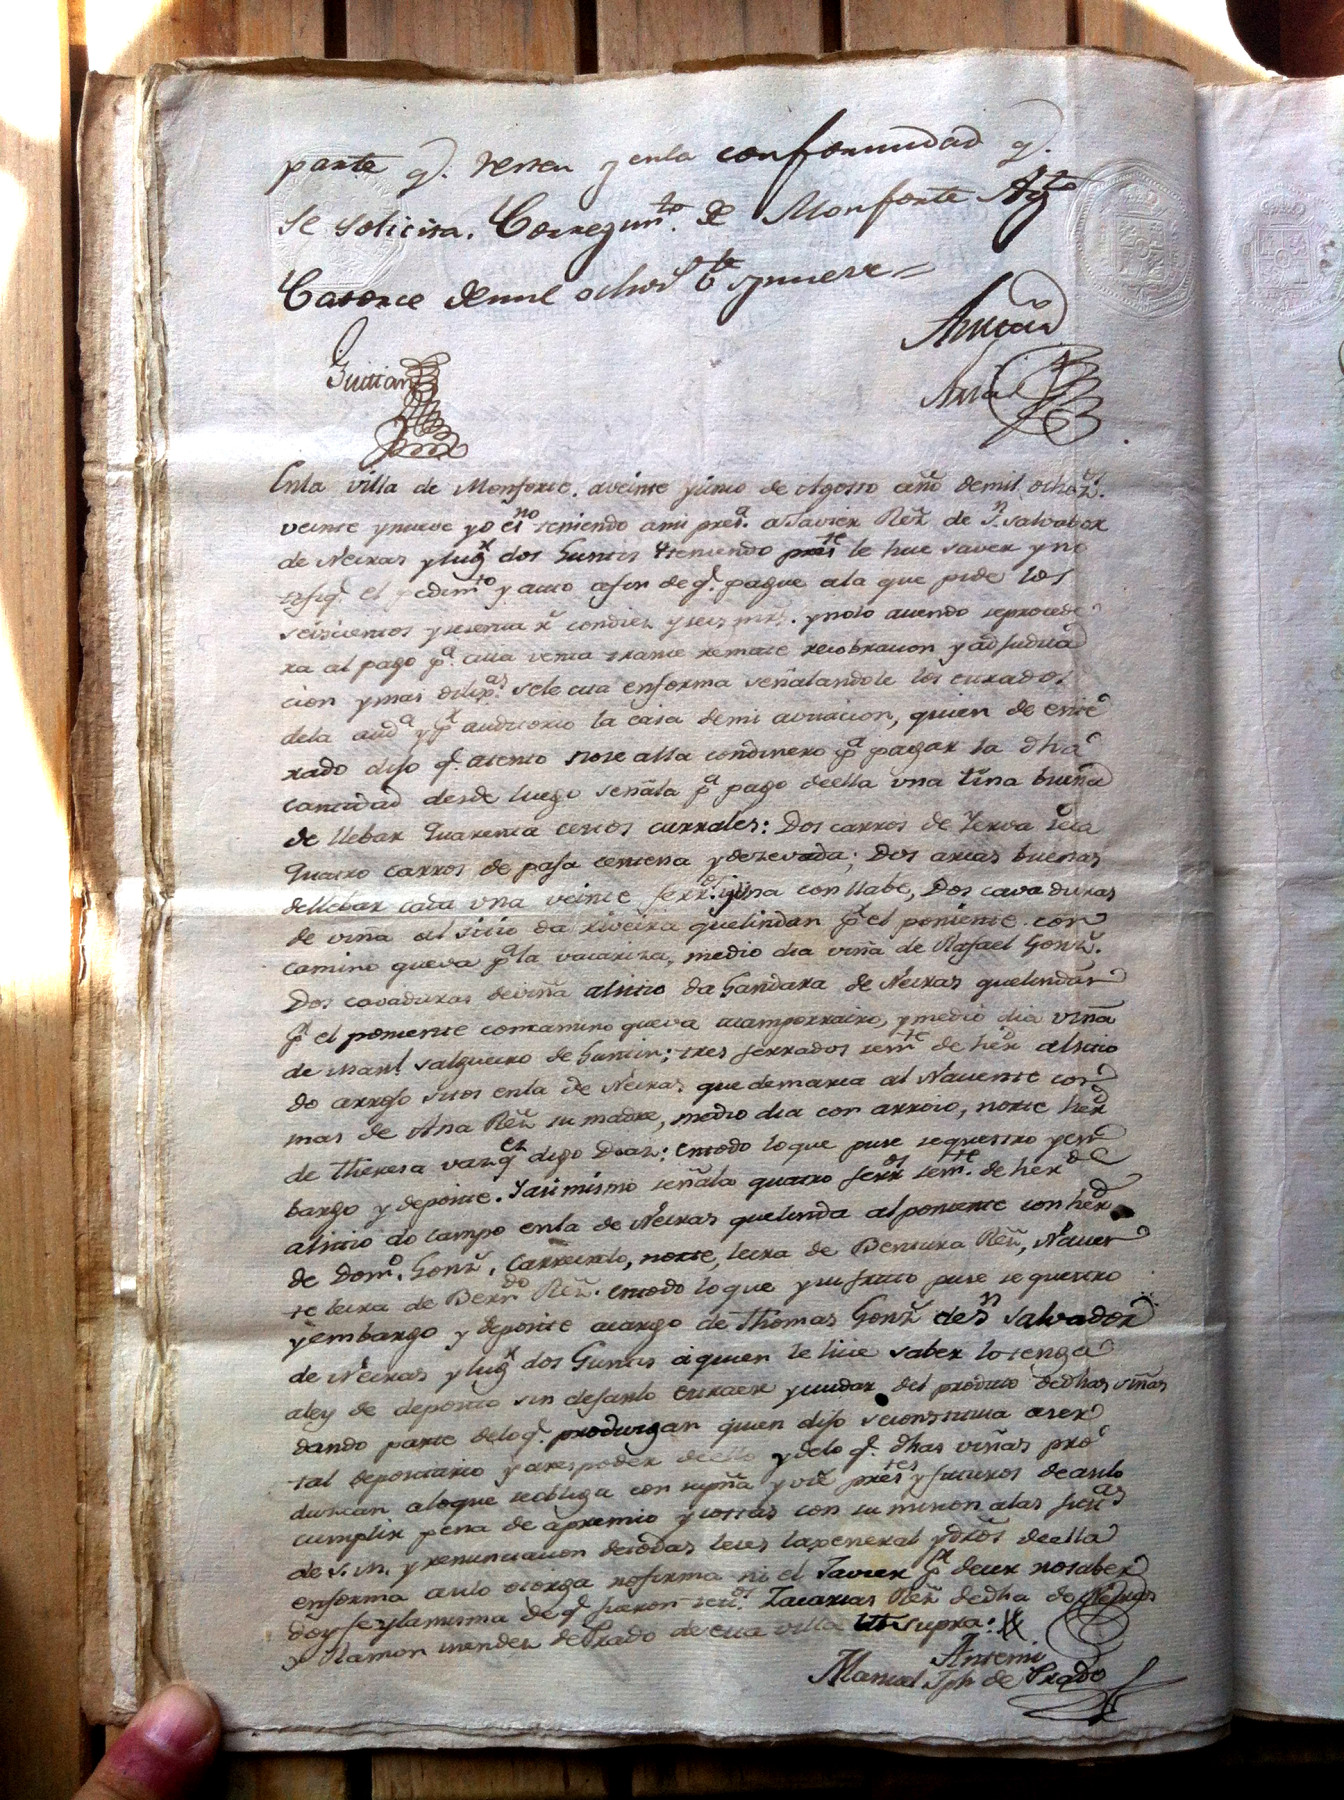 parte q.e y en la conformidad q.e
se solicita. Corregim.to de Monforte Ag.to
Catorce de mil ochoc.s y nueve =
Guitian
Ante mi
En la villa de Monforte, a veinte y de Agosto año de mil ochoz.s
veinte y nueve yo es.no teniendo a mi pres.a a Javier Rez de S.n Salvador
de Neiras y lug.r dos Guntis teniendo pres.te le hice saver y no
tifiq.e el pedim.to y auto a fin de q.e pague a la que pide los
seiscientos y setenta r.s con diez y seis mrs. y no lo aciendo se procede
ra al pago p.a cuia venta trance remate recobracion y adjudica
cion y mas dilig.as se le cita en forma señalandole los estrados
de la aud.a y p.r auditorio la casa de mi avitacion, quien de ente
rado dijo q.e atento no se alla con dinero p.a pagar la dha
cantidad desde luego señala p.a pago de ella una tina buena
de llebar quarenta cestos currales: Dos carros de Yerva seca
Quatro carros de paja centena y de zevada; Dos arcas buenas
de llebar cada una veinte ferr.s una con llabe, Dos cavaduras
de viña al sitio da riveira que lindan p.r el poniente con
camino que va p.a la vacariza, medio dia viña de Rafael Gonz.
Dos cavaduras de viña al sitio da Gandara de Neiras que lindan
p.r el poniente con camino que va a camporrairo, y medio dia viña
de Man.l Salgueiro de Guntin; tres ferrados sem.te de her.d al sitio
do arrojo sitos en la de Neiras que demarca al Naciente con
mas de Ana Rez su madre, medio dia con arroio, norte her.d
de Theresa Vazq.ez digo Diaz: en todo lo que puse sequestro y em
bargo y deposite. Y asi mismo señala quatro ferr.dos sem.te de her.d
al sitio do campo en la de Neiras que linda al poniente con her.d
de Dom.o Gonz. Carreirelo, norte, leira de Bentura Rez, Nacien
te leira de Bern.do Rez. en todo lo que y su fruto puse sequestro
y embargo y deposite a cargo de Thomas Gonz de S.n Salvador
de Neiras y lug.r dos Guntis a quien le hice saber lo tenga
a ley de deposito sin dejarlo extraer y cuidar del produto de dhas viñas
dando parte de lo q.e produzgan quien dijo se constituia a ser
tal depositario y a responder de ello y de lo q.e dhas viñas pro
duzcan a lo que se obliga con su pna y vie pres.tes y futuros de asi lo
cumplir pena de apremio y costas con su mision a las just.as
de S. M. y renunciacion de todas leies la general y dros de ella
en forma asi lo otorga no firma ni el Javier p.r decir no saber
doy fe y la misma de q.e fueron tgos Zacarias Rez de dha de Neiras
y Ramon Mendez de Prado de esta villa ut supra:
Ante mi
Manuel Jph de Prado